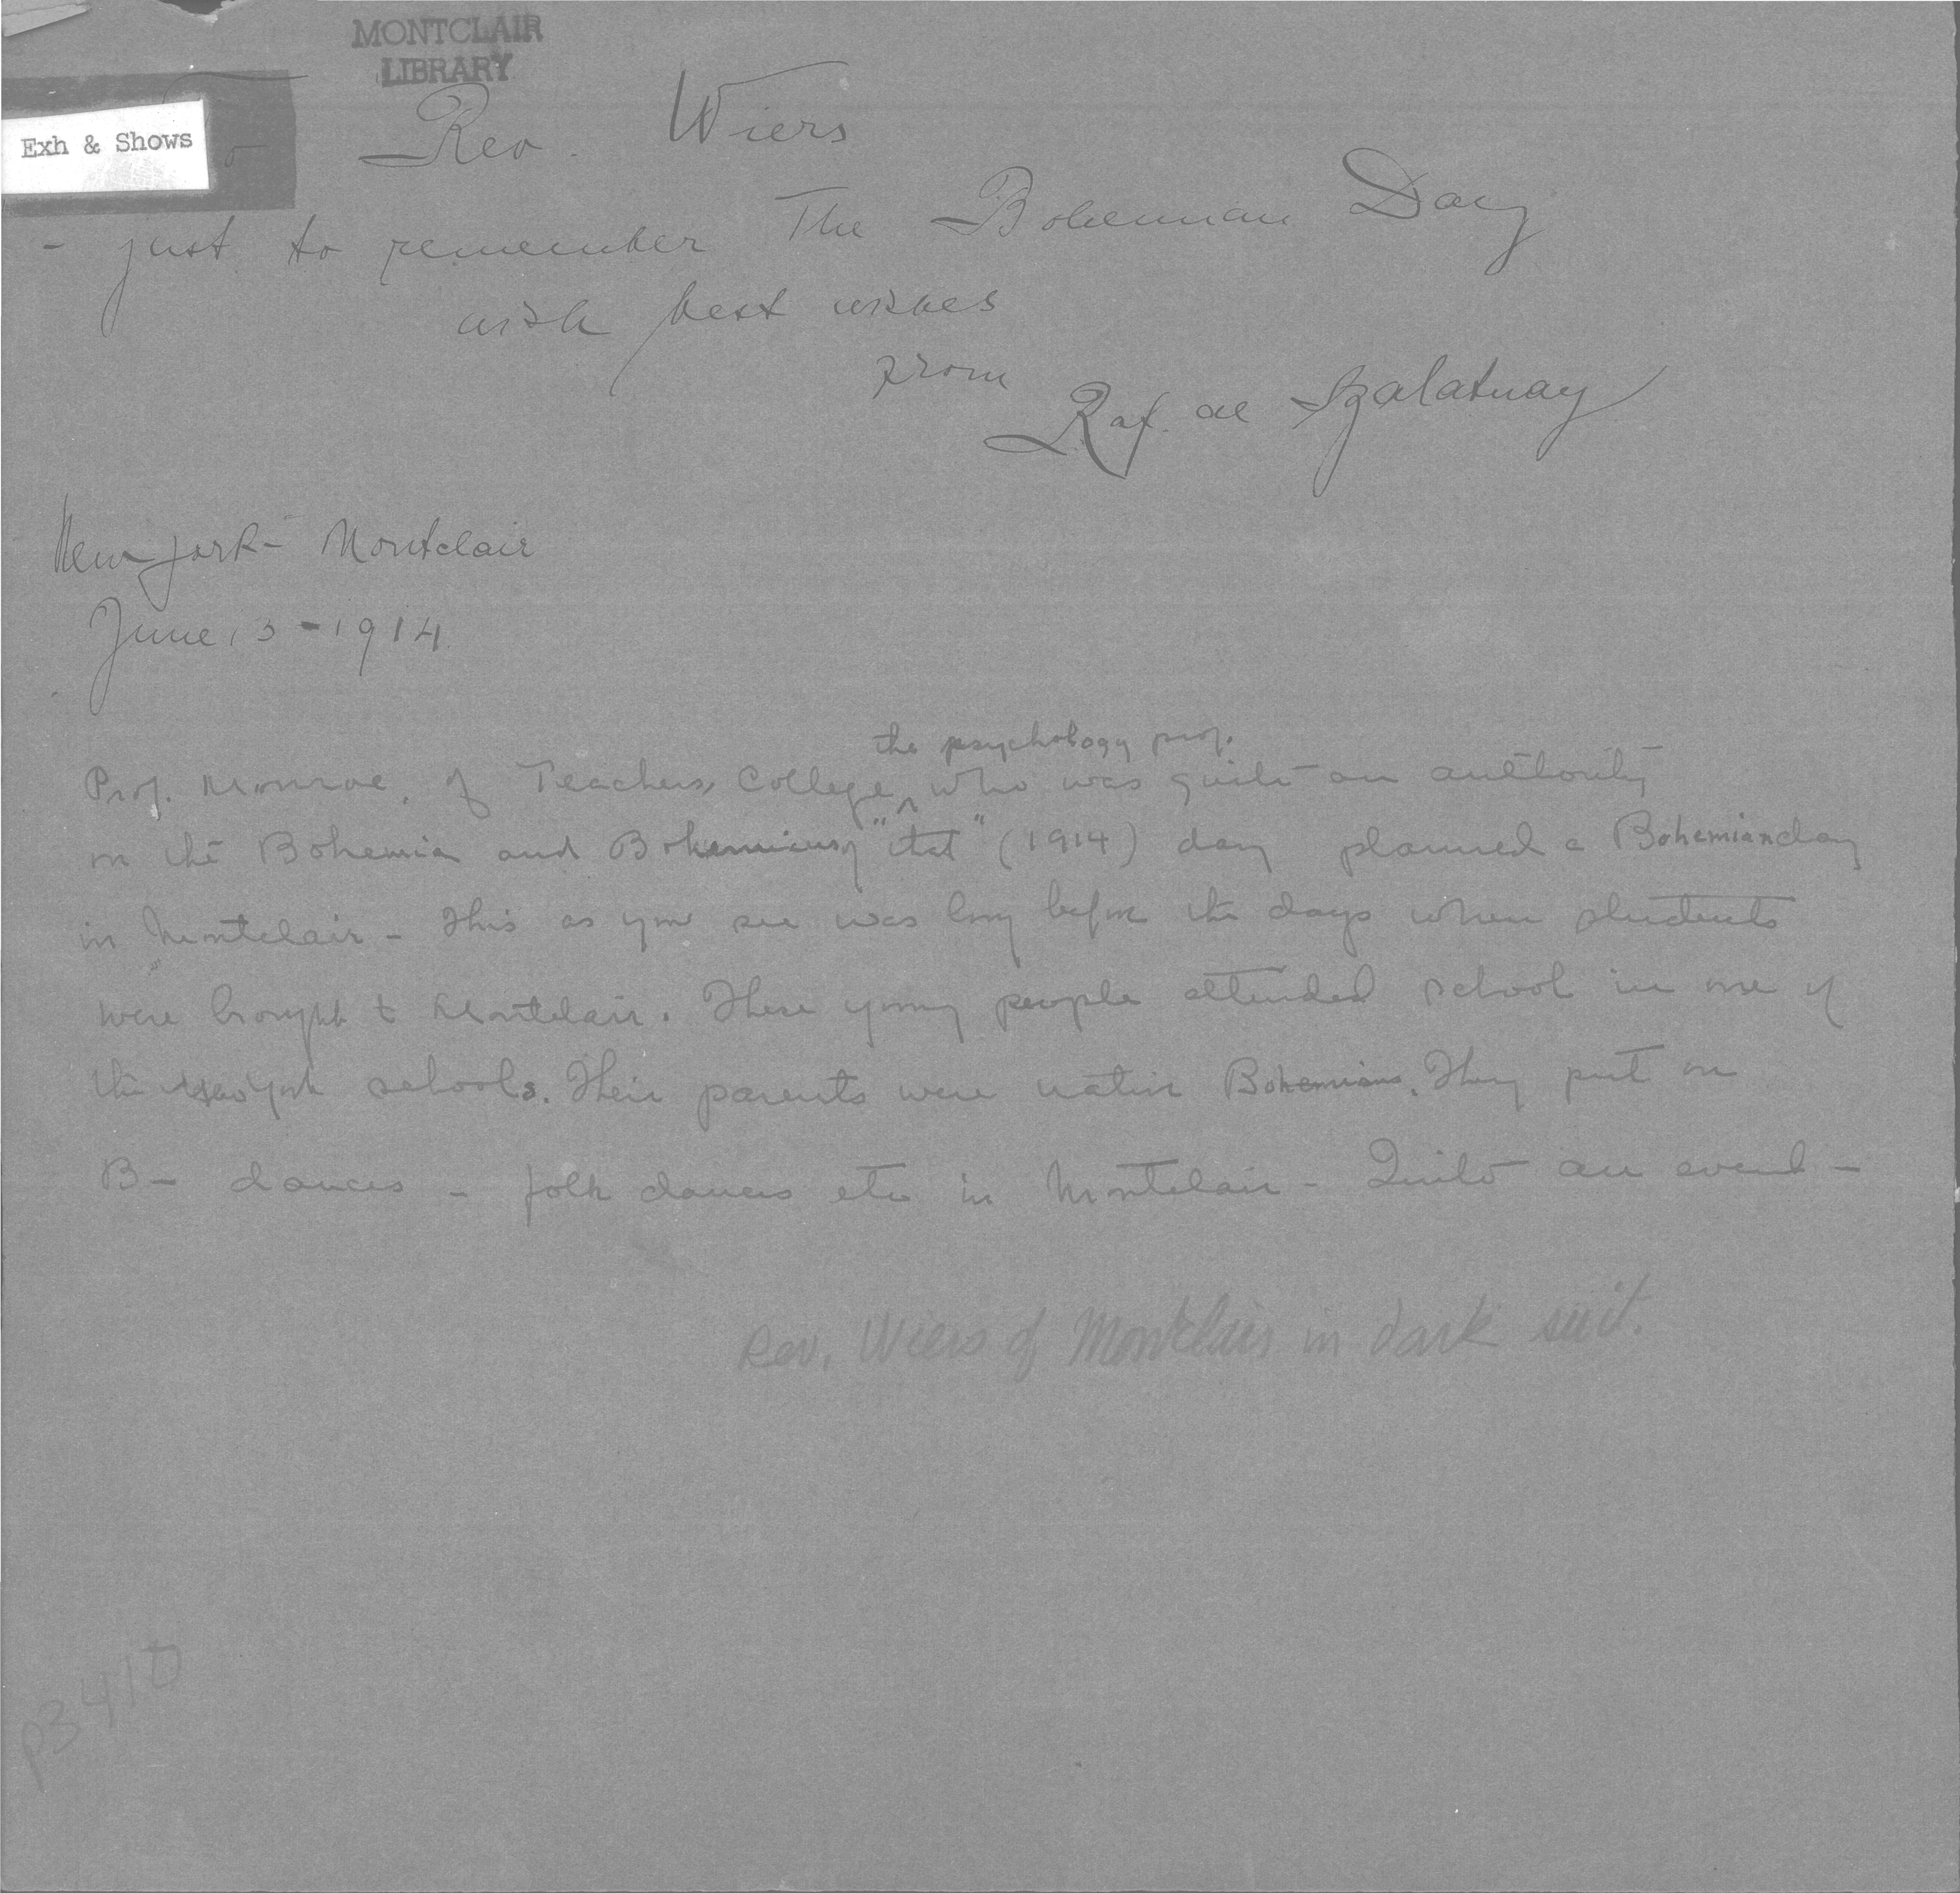 MONTCLAIR
LIBRARY
Exh & Shows
To Rev. Wiers
- just to remember The Bohemian Day
with best wishes
from
Raf. de Szalatnay
New York - Montclair
June 13 - 1914
the psychology prof.
Prof. Monroe, of Teachers College, who was quite an authority
on the Bohemia and Bohemians of "that" (1914) day planned a Bohemian day
in Montclair - This as you see was long before the days when students
were brought to Montclair. These young people attended school in one of
the New York schools. Their parents were native Bohemians. They put on
B- dances - folk dances etc in Montclair - Quite an event -
Rev. Wiers of Montclair in dark suit.
p3410